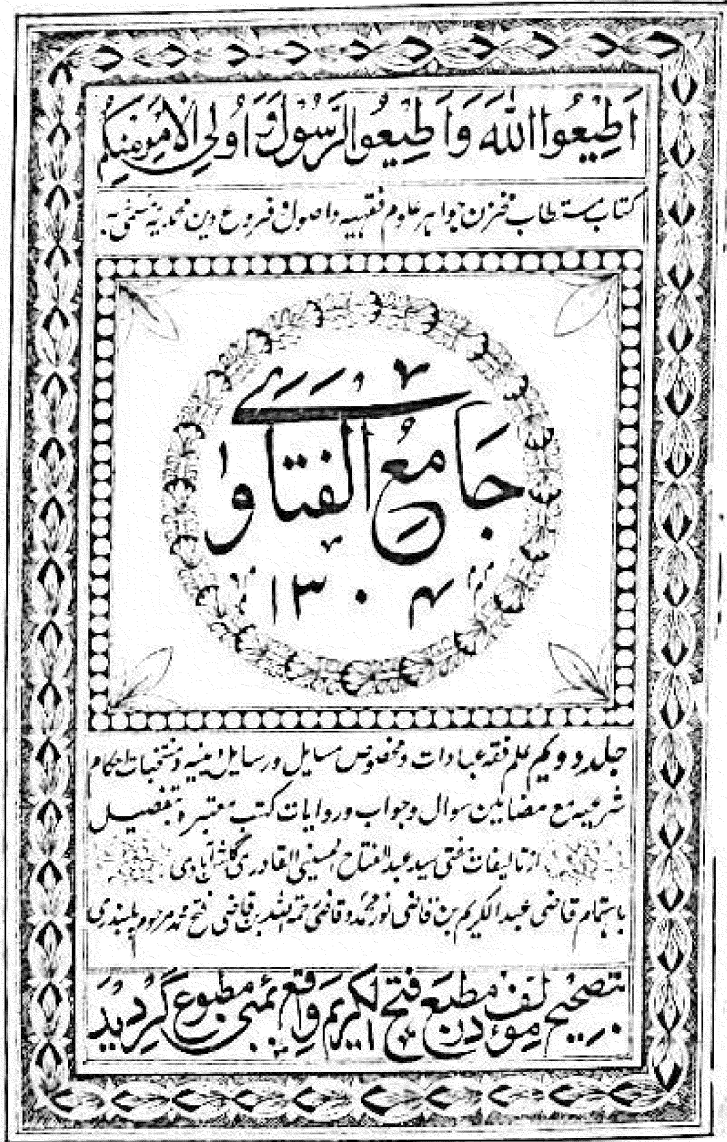 اَطِيْعُوا اللّٰهَ وَاَطِيْعُوا الرَّسُوْلَ وَاُولِي الْاَمْرِ مِنْكُمْ
کتاب مستطاب مخزن جواہر علوم فقہیہ واصول و فروع دین محمدیہ مسمی بہ
جَامعُ الفتاوےٰ
۱۳۰۴
جلد دویکم علم فقہ عبادات ومخصوص مسایل ورسایل دینیہ ومنتخبات احکام
شرعیہ مع مضامین سوال وجواب وروایات کتب معتبرہ بتفصیل
از تالیفات مفتی سید عبدالفتاح الحسینی القادری گلشن آبادی
باہتمام قاضی عبدالکریم بن قاضی نور محمد وقاضی رحمۃ اللہ بن قاضی فتح محمد مرحوم پلبندری
بتصحیح مؤلف در مطبع فتح الکریم واقع بمبئی مطبوع گردید